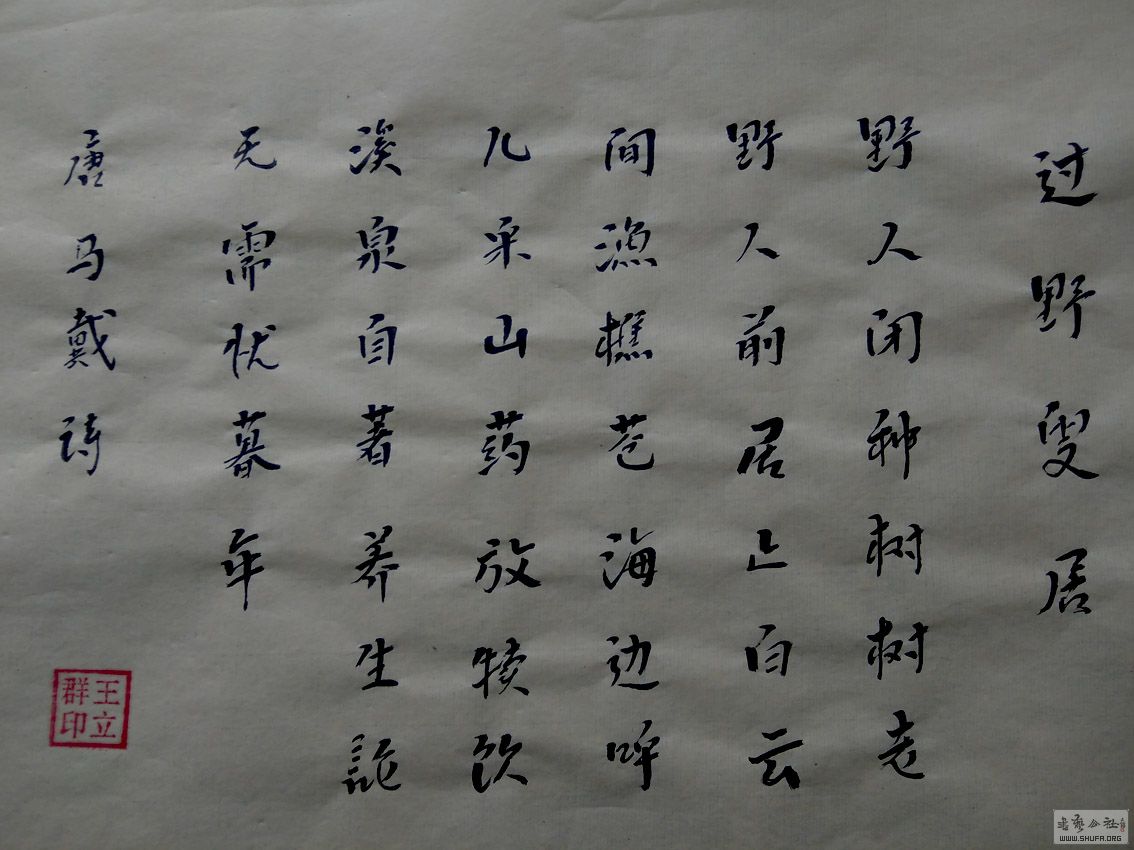 过野叟居
野人闲种树树老
野人前居止白云
间渔樵苍海边呼
儿采山药放犊饮
溪泉自著养生
无需忧暮年
唐马戴诗
王立
群印
書艺公社
WWW.SHUFA.ORG